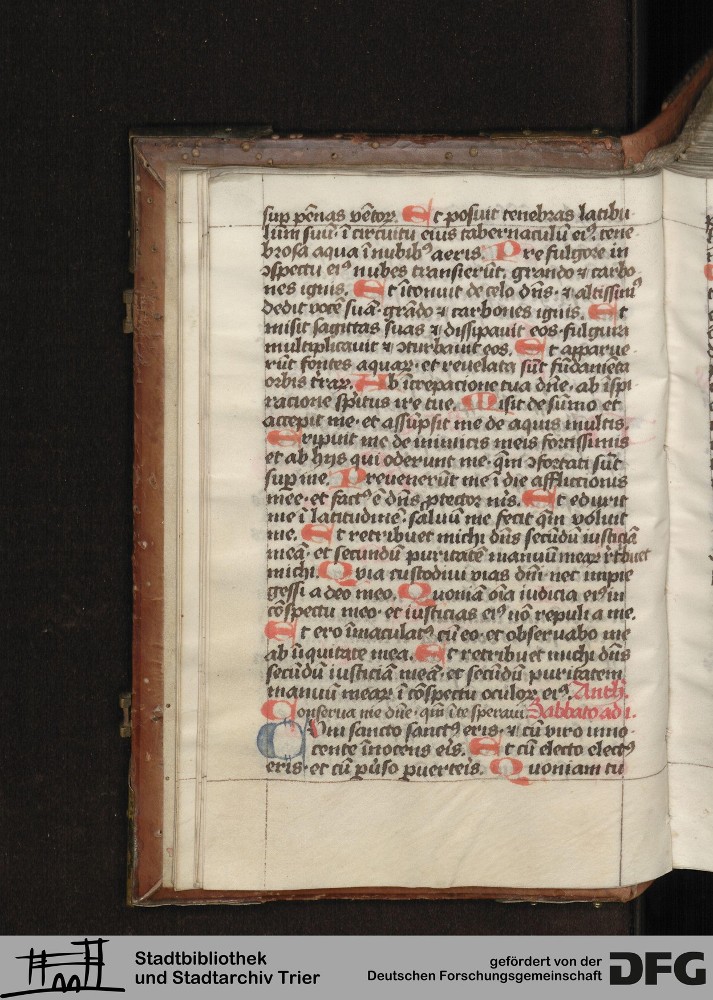 sup pēnas vētoꝝ. Et posuit tenebras latibu
lum suū. ī circuitu eius tabernaculū eiꝰ. tene
brosa aqua ī nubibꝰ aeris. Pre fulgore in
ꝯspectu eiꝰ nubes transierūt. grando ⁊ carbo
nes ignis. Et ītonuit de celo dn̄s. ⁊ altissimꝰ
dedit vocē suā. grādo ⁊ carbones ignis. Et
misit sagittas suas ⁊ dissipavit eos. fulgura
multiplicavit ⁊ ꝯturbavit eos. Et apparue
rūt fontes aquaꝝ. et revelata sūt fūdamēta
orbis trāꝝ. Ab īcrepacione tua dn̄e. ab īspi
racione sp̄itus ire tue. Misit de sūmo et
accepit me. et assūpsit me de aquis multis.
Eripuit me de inimicis meis fortissimis
et ab hijs qui oderunt me. qm̄ ꝯfortati sūt
sup me. Prevenerūt me ī die afflictionis
mee. et factꝰ ē dn̄s ꝓtector mꝰs. Et eduxit
me ī latitudinē. salvū me fecit qm̄ voluit
me. Et retribuet michi dn̄s secūdū iusticiā
meā. et secundū puritatē manuū meaꝝ rt̄buet
michi. Quia custodivi vias dn̄i. nec impie
gessi a deo meo. Quoniā oīa iudicia eiꝰ in
cōspectu meo. et iusticias eiꝰ nō repuli a me.
Et ero īmaculatꝰ cū eo. et observabo me
ab īiquitate mea. Et retribuet michi dn̄s
secūdū iusticiā meā. et secūdū puritatem
manuū meaꝝ ī cōspectu oculoꝝ eiꝰ. Anth.
Conserva me dn̄e. qm̄ ī te speravi Sabbato ad i.
Cum sancto sanctꝰ eris. ⁊ cū viro inno-
cente īnocens eīs. Et cū electo electꝰ
eris. et cū pūso puerteīs. Quoniam tu
Stadtbibliothek
und Stadtarchiv Trier
gefördert von der
Deutschen Forschungsgemeinschaft
DFG